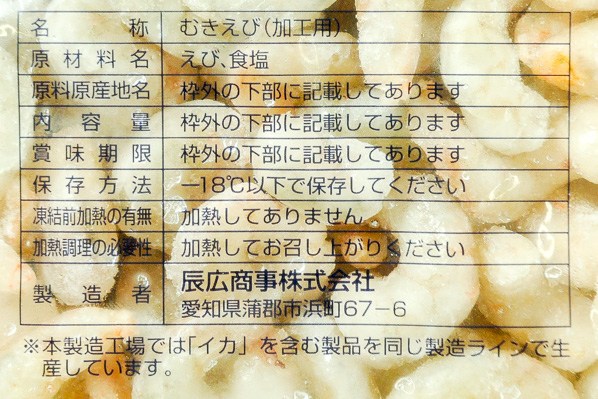 名称 むきえび(加工用)
原材料名 えび、食塩
原料原産地名 枠外の下部に記載してあります
内容量 枠外の下部に記載してあります
賞味期限 枠外の下部に記載してあります
保存方法 －18℃以下で保存してください
凍結前加熱の有無 加熱してありません
加熱調理の必要性 加熱してお召し上がりください
製造者 辰広商事株式会社
愛知県蒲郡市浜町67－6
※本製造工場では「イカ」を含む製品を同じ製造ラインで生
産しています。